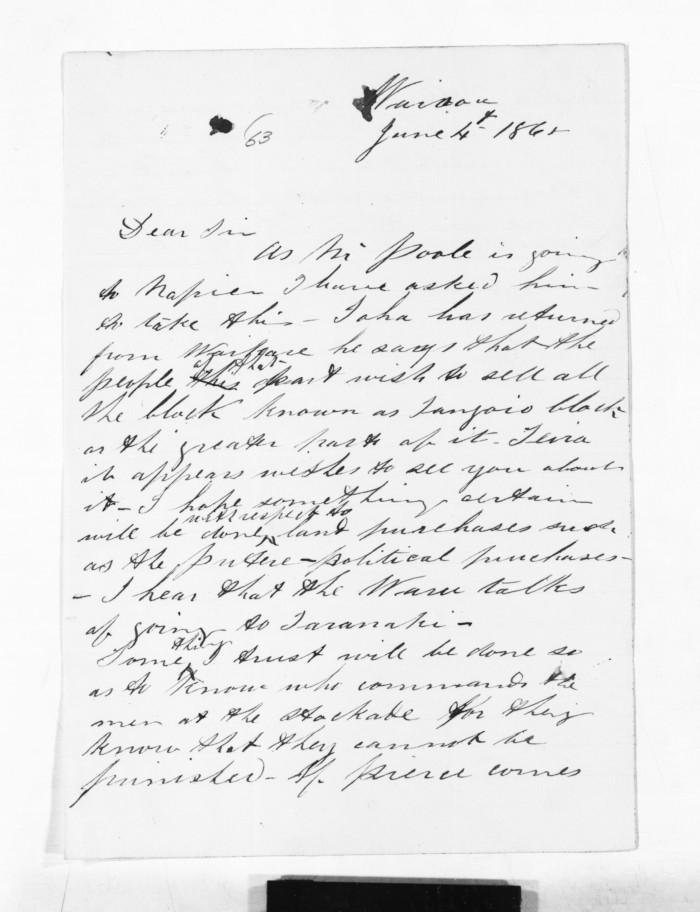 63
Wairoa
June 4th 1862
Dear Sir
As Mr Poole is going
to Napier I have asked him
to take this - Ioha has returned
from he says that the
people of that part wish to sell all
the block known as Tangoio block
or the greater part of it -
it appears wishes to see you about
it - I hope something certain
will be done with respect to land purchases such
as the - political purchases -
- I hear that the Waru talks
of going to Taranaki -
Something I trust will be done so
as to know who commands the
men at the stockade for they
know that they cannot be
punished - If Pierce comes